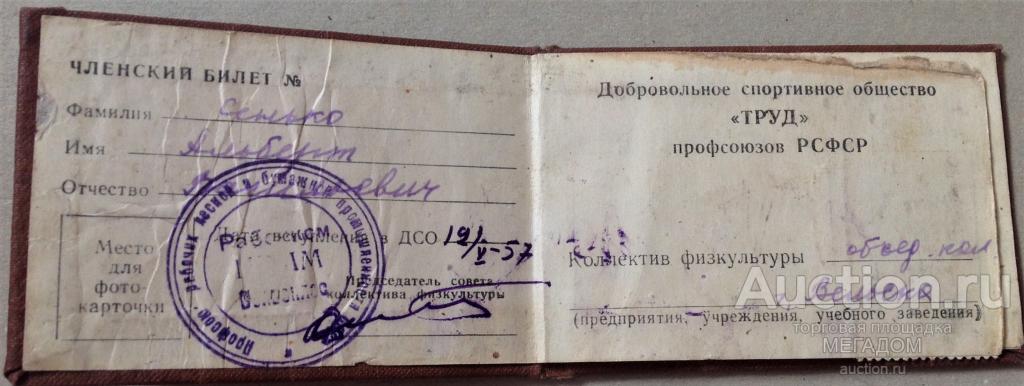 ЧЛЕНСКИЙ БИЛЕТ №
Фамилия Сенько
Имя Альберт
Отчество
Место
для
фото-
карточки
Дата вступления в ДСО 19/V-57
Председатель совета
коллектива физкультуры
Профсоюз рабочих лесной и бумажной промышленности
Рабочком
Добровольное спортивное общество
«ТРУД»
профсоюзов РСФСР
Коллектив физкультуры объед. кол
(предприятия, учреждения, учебного заведения)
Auction.ru
торговая площадка
МЕГАДОМ
auction.ru